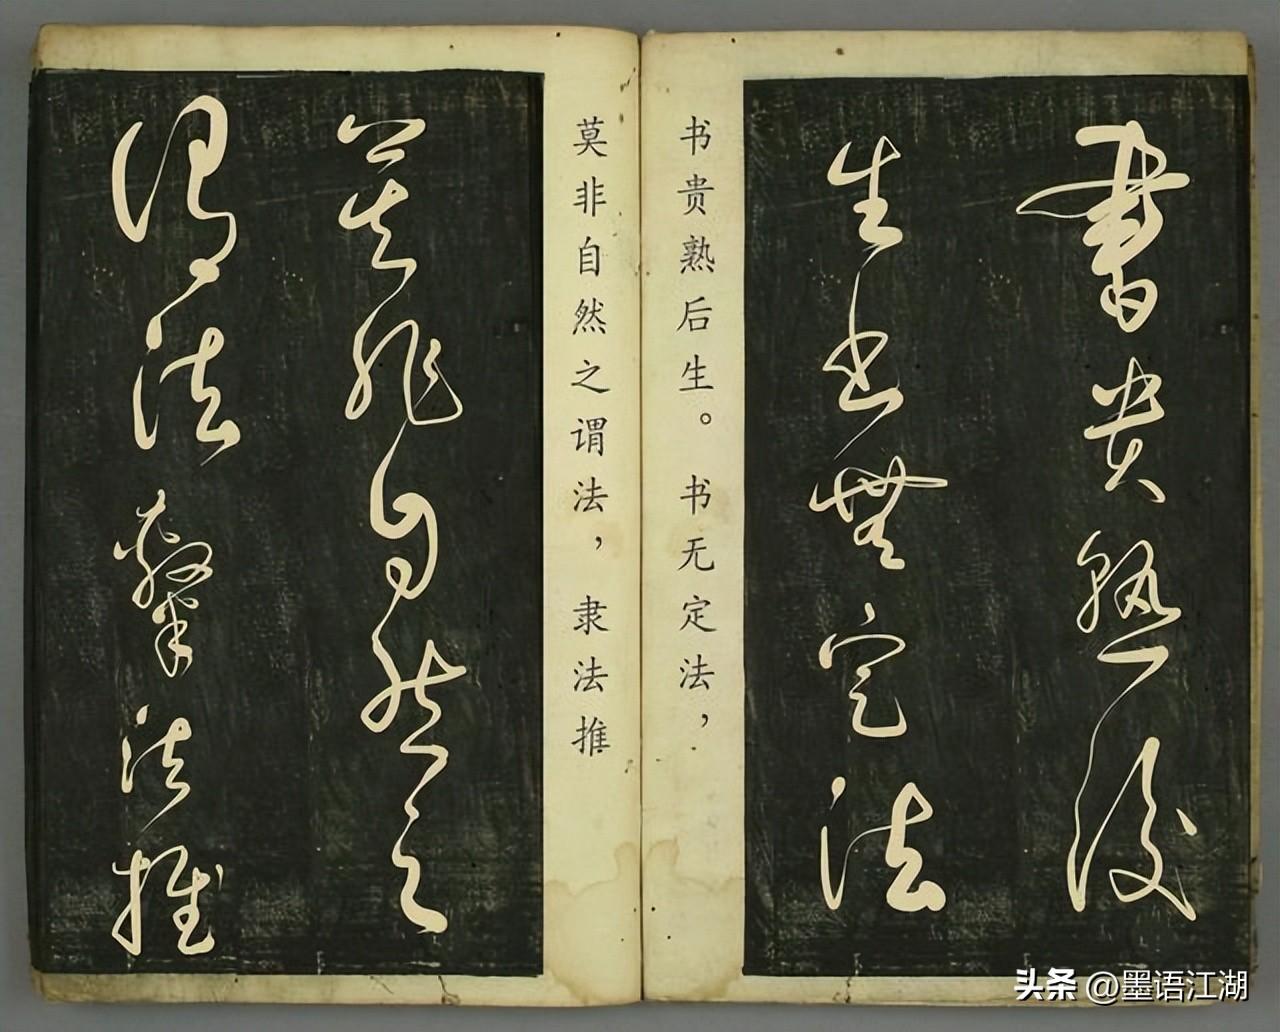 書貴熟後
生書無定法
书贵熟后生。书无定法，
莫非自然之谓法，隶法推
莫非自然之
謂法隸法推
头条 @墨语江湖